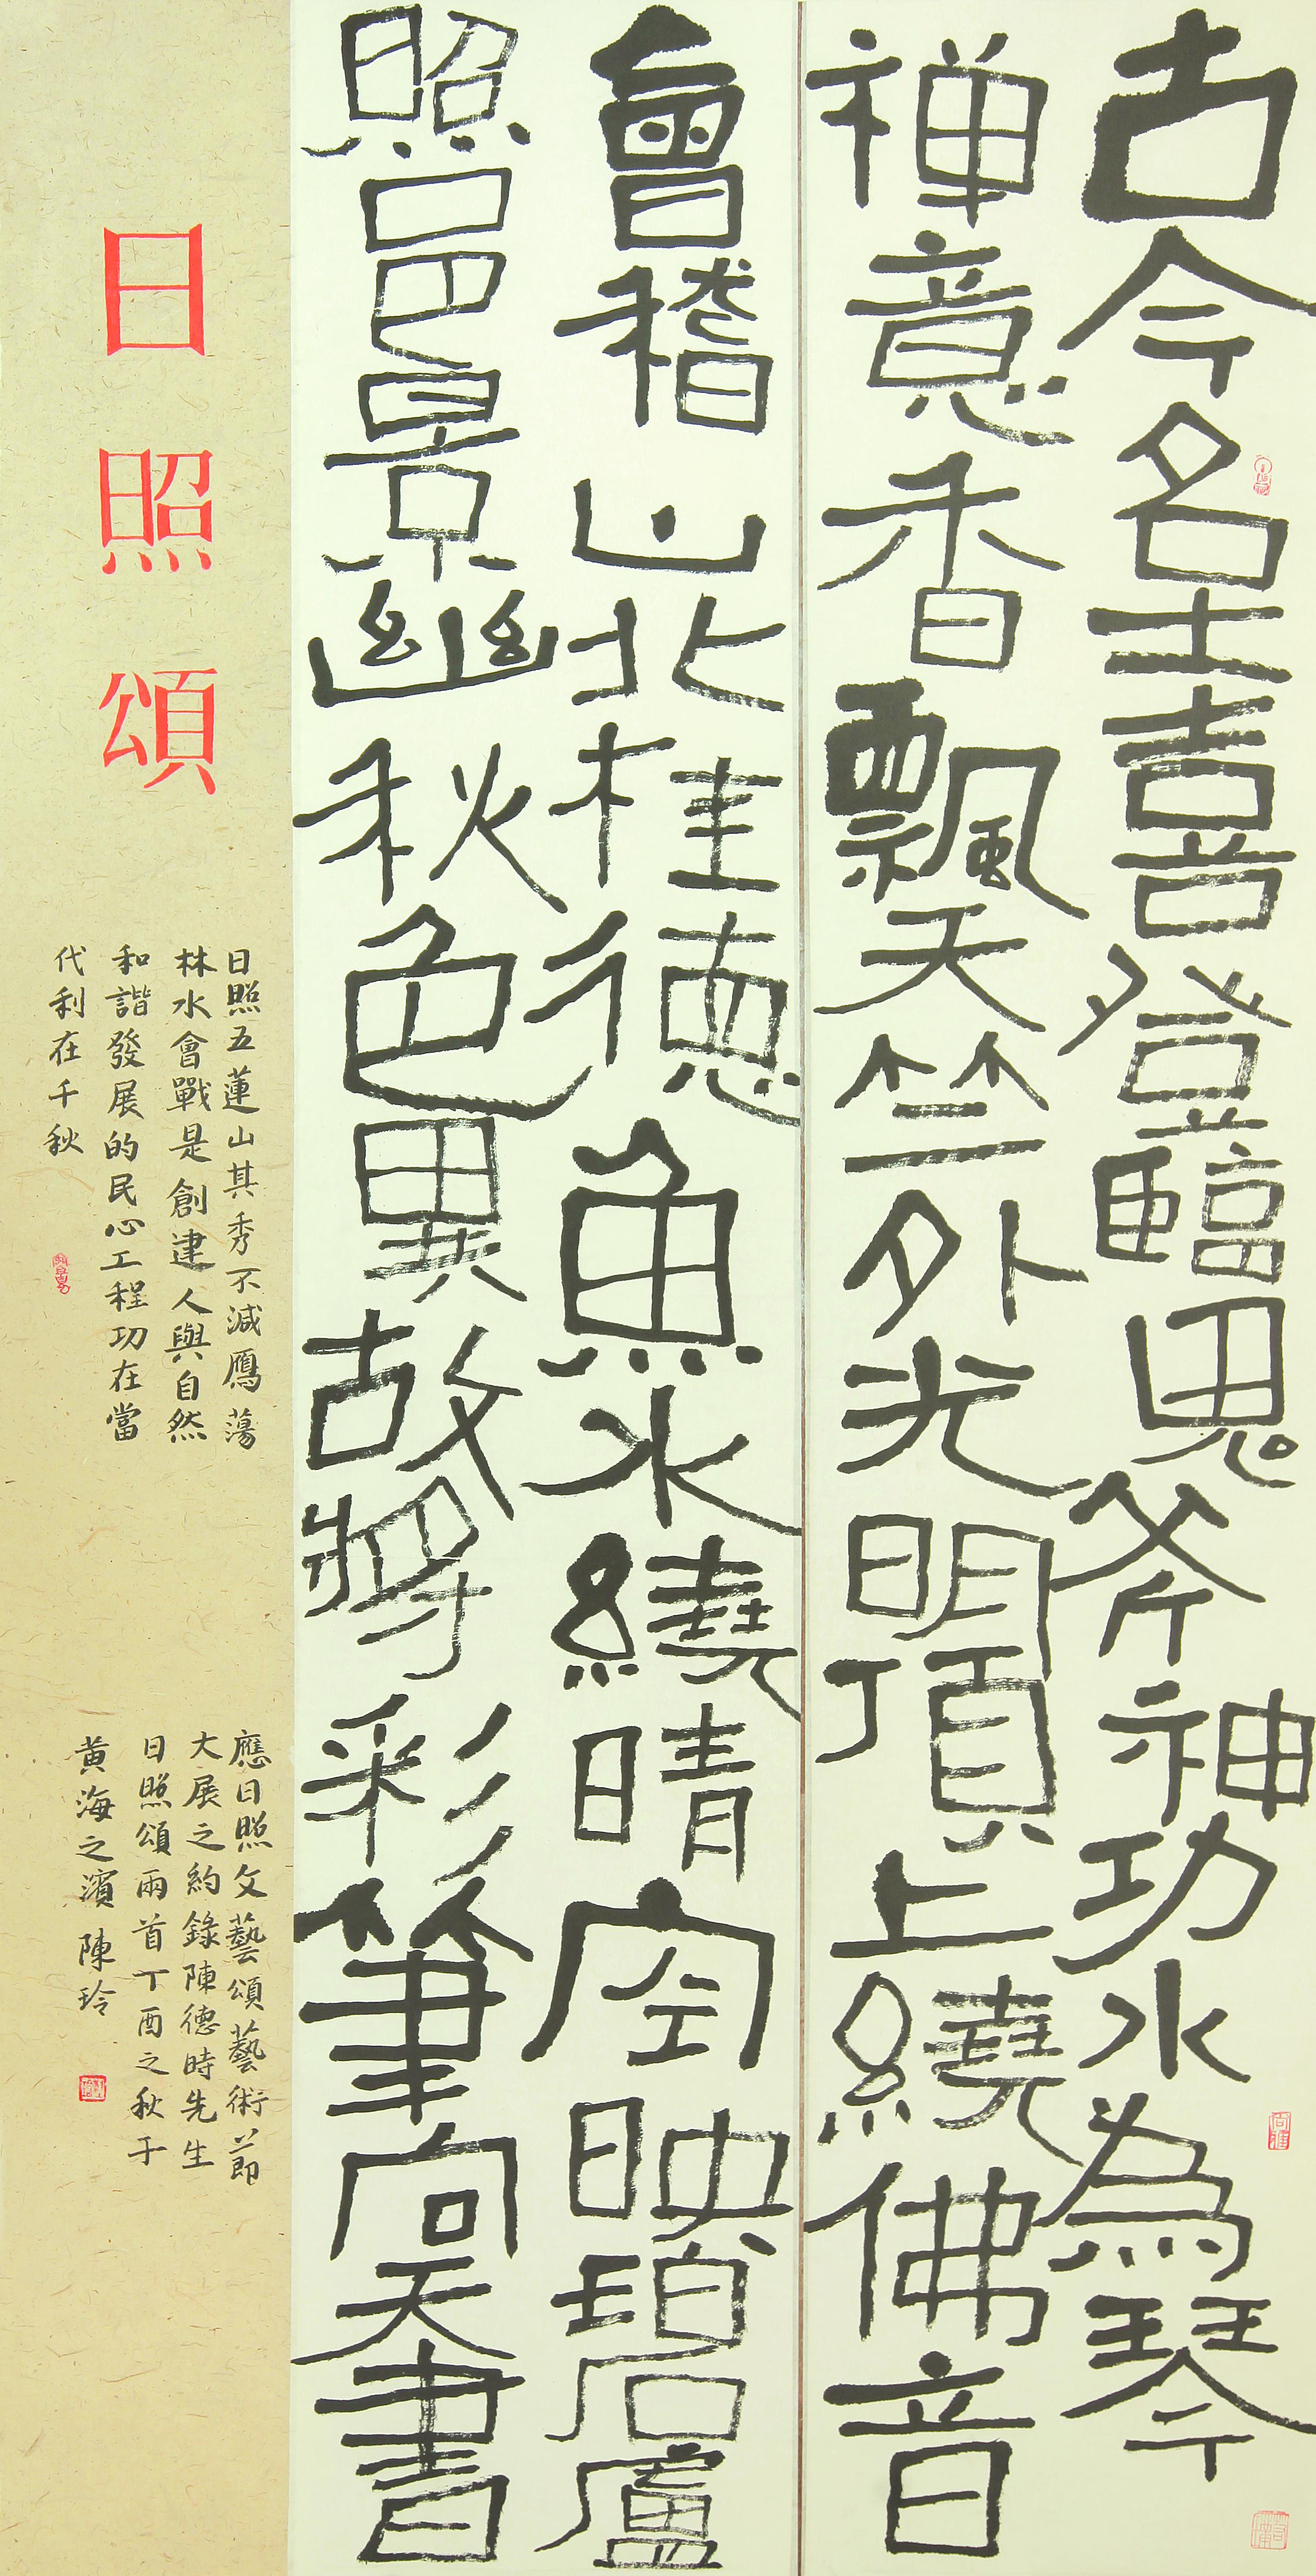 古今名士喜登臨鬼斧神功水為琴
禅意香飄天竺外光明頂上繞佛音
會稽山北桂德魚水繞晴空映碧廬
照邑景幽秋色異故將彩筆向天書
日照頌
日照五蓮山其秀不減鴈蕩
林水會戰是創建人與自然
和諧發展的民心工程功在當
代利在千秋
應日照文藝頌藝術節
大展之約錄陳德時先生
日照頌兩首丁酉之秋于
黄海之濱 陳玲